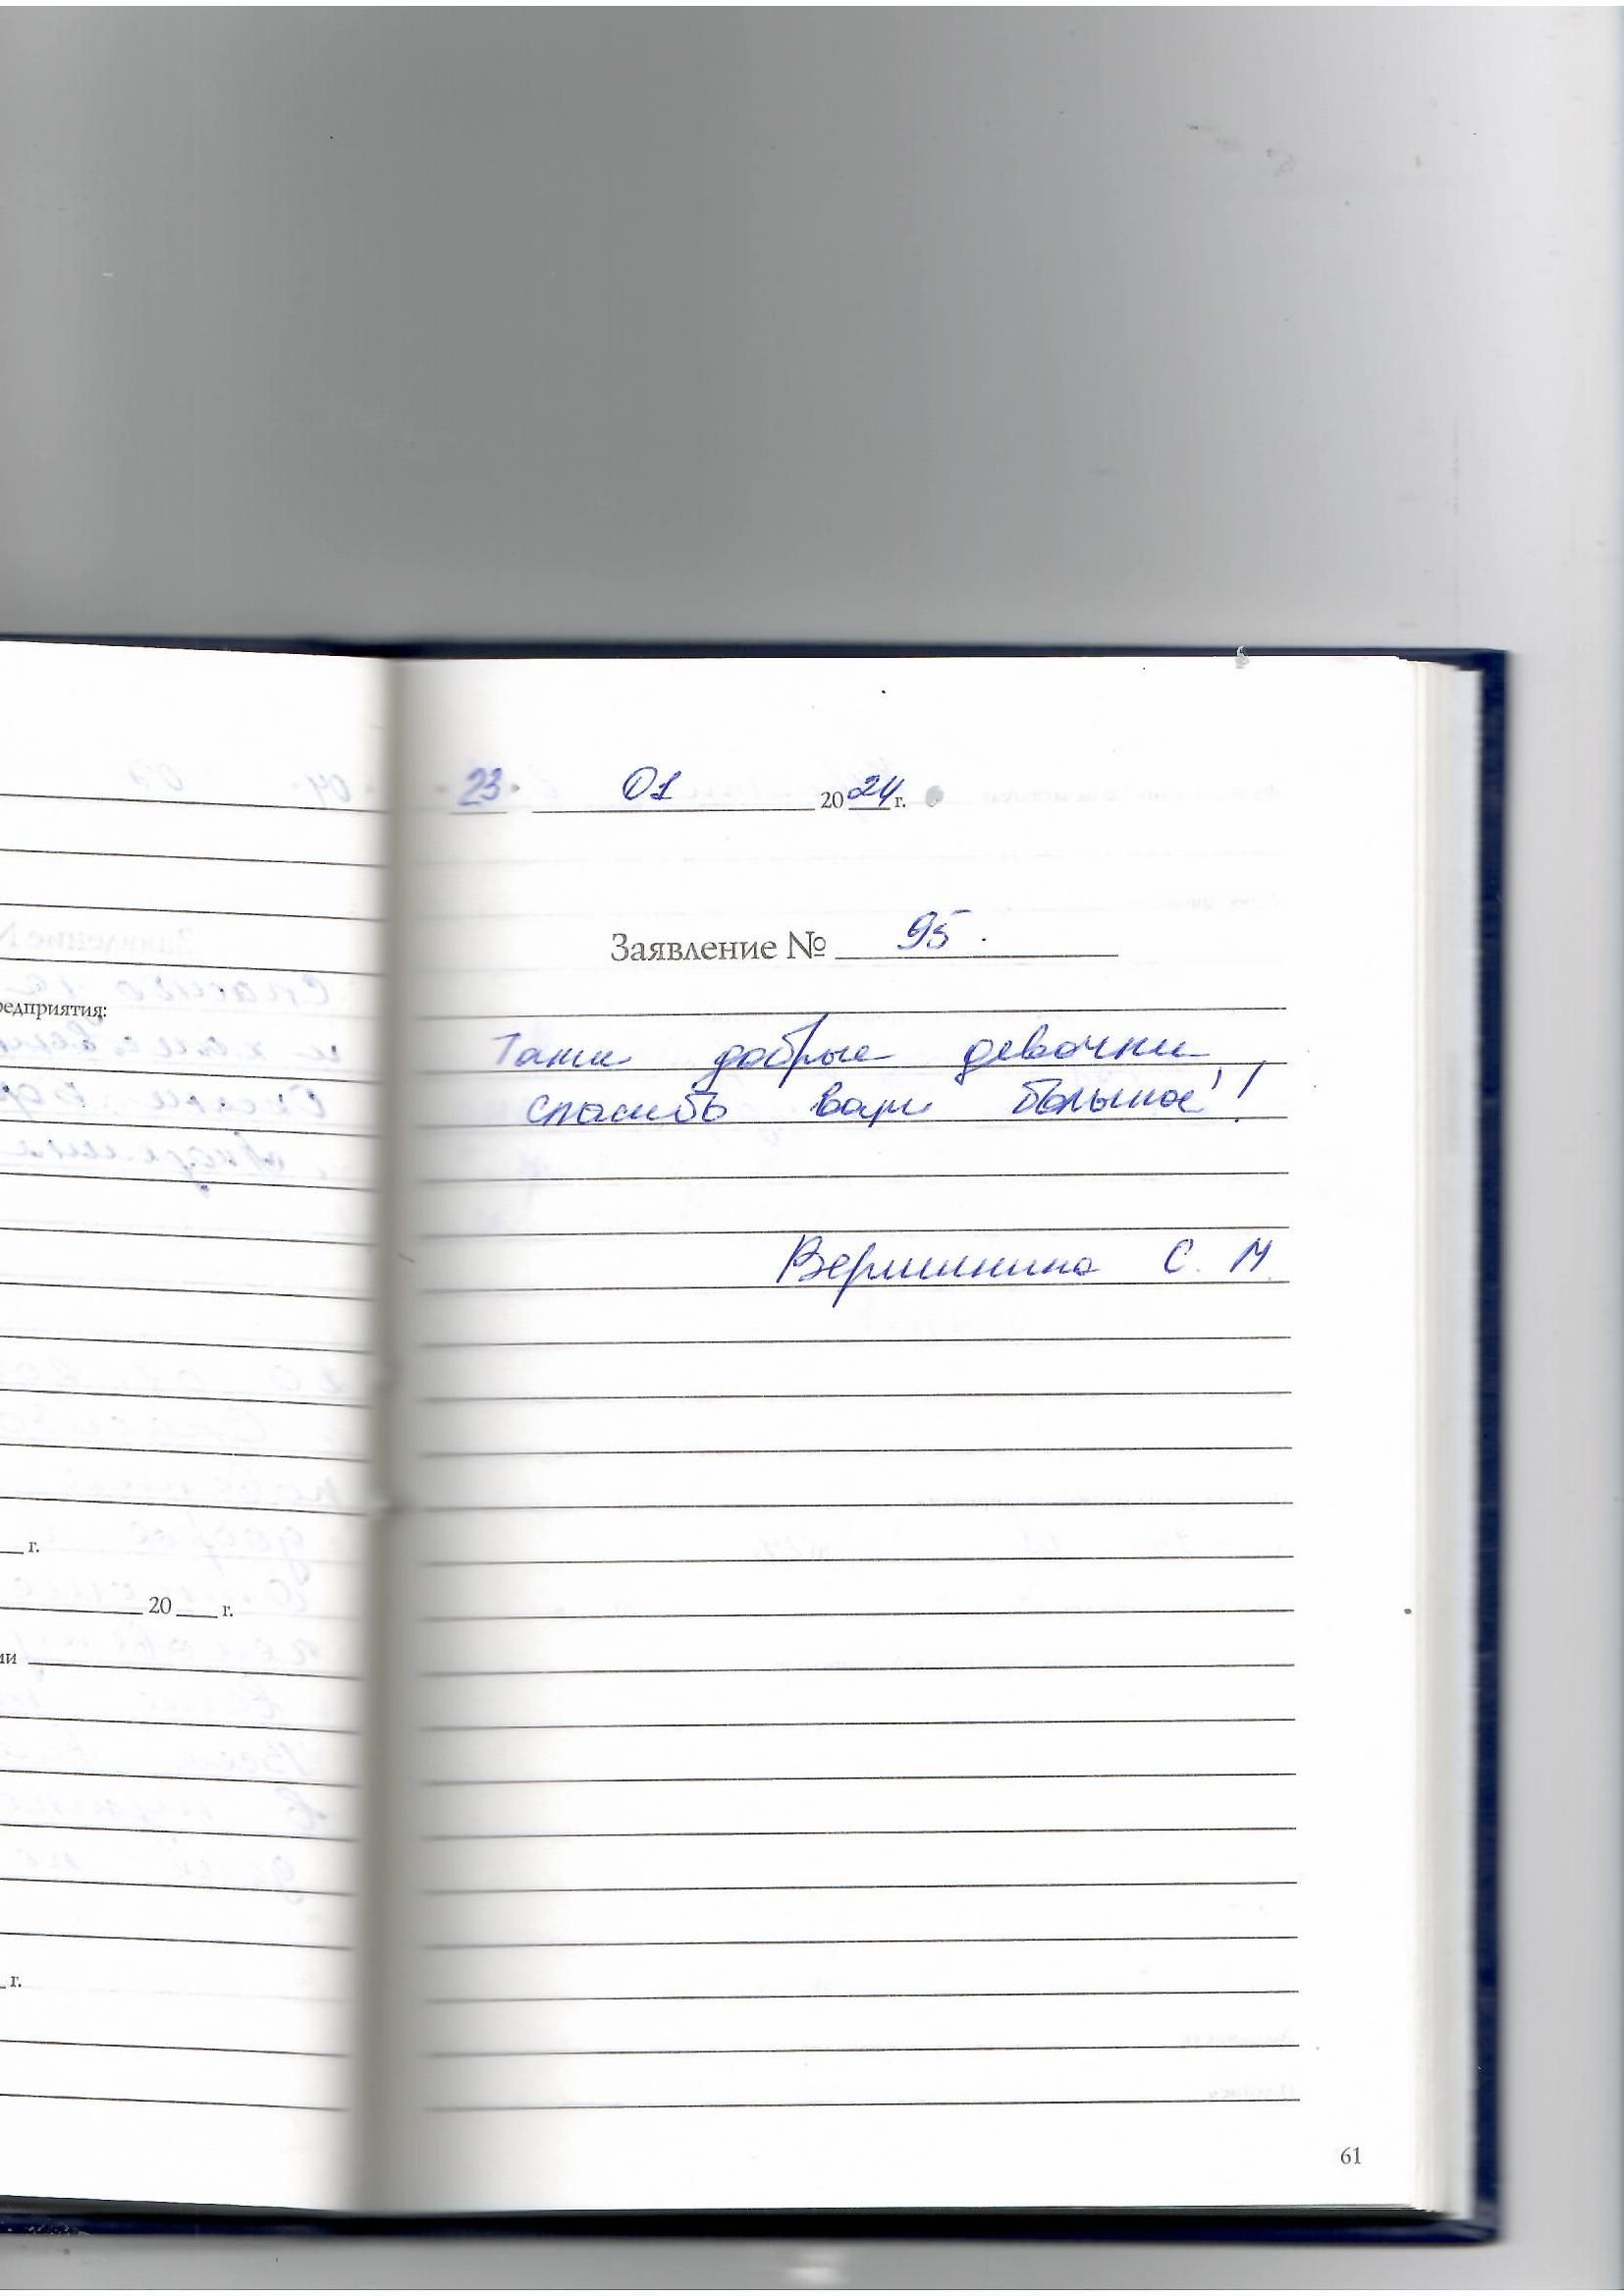 "23" 01 2024 г.
Заявление № 95.
едприятия:
Такие добрые девочки
спасибо вам большое!!
Вершинина С. М.
г.
20 г.
ии
г.
61